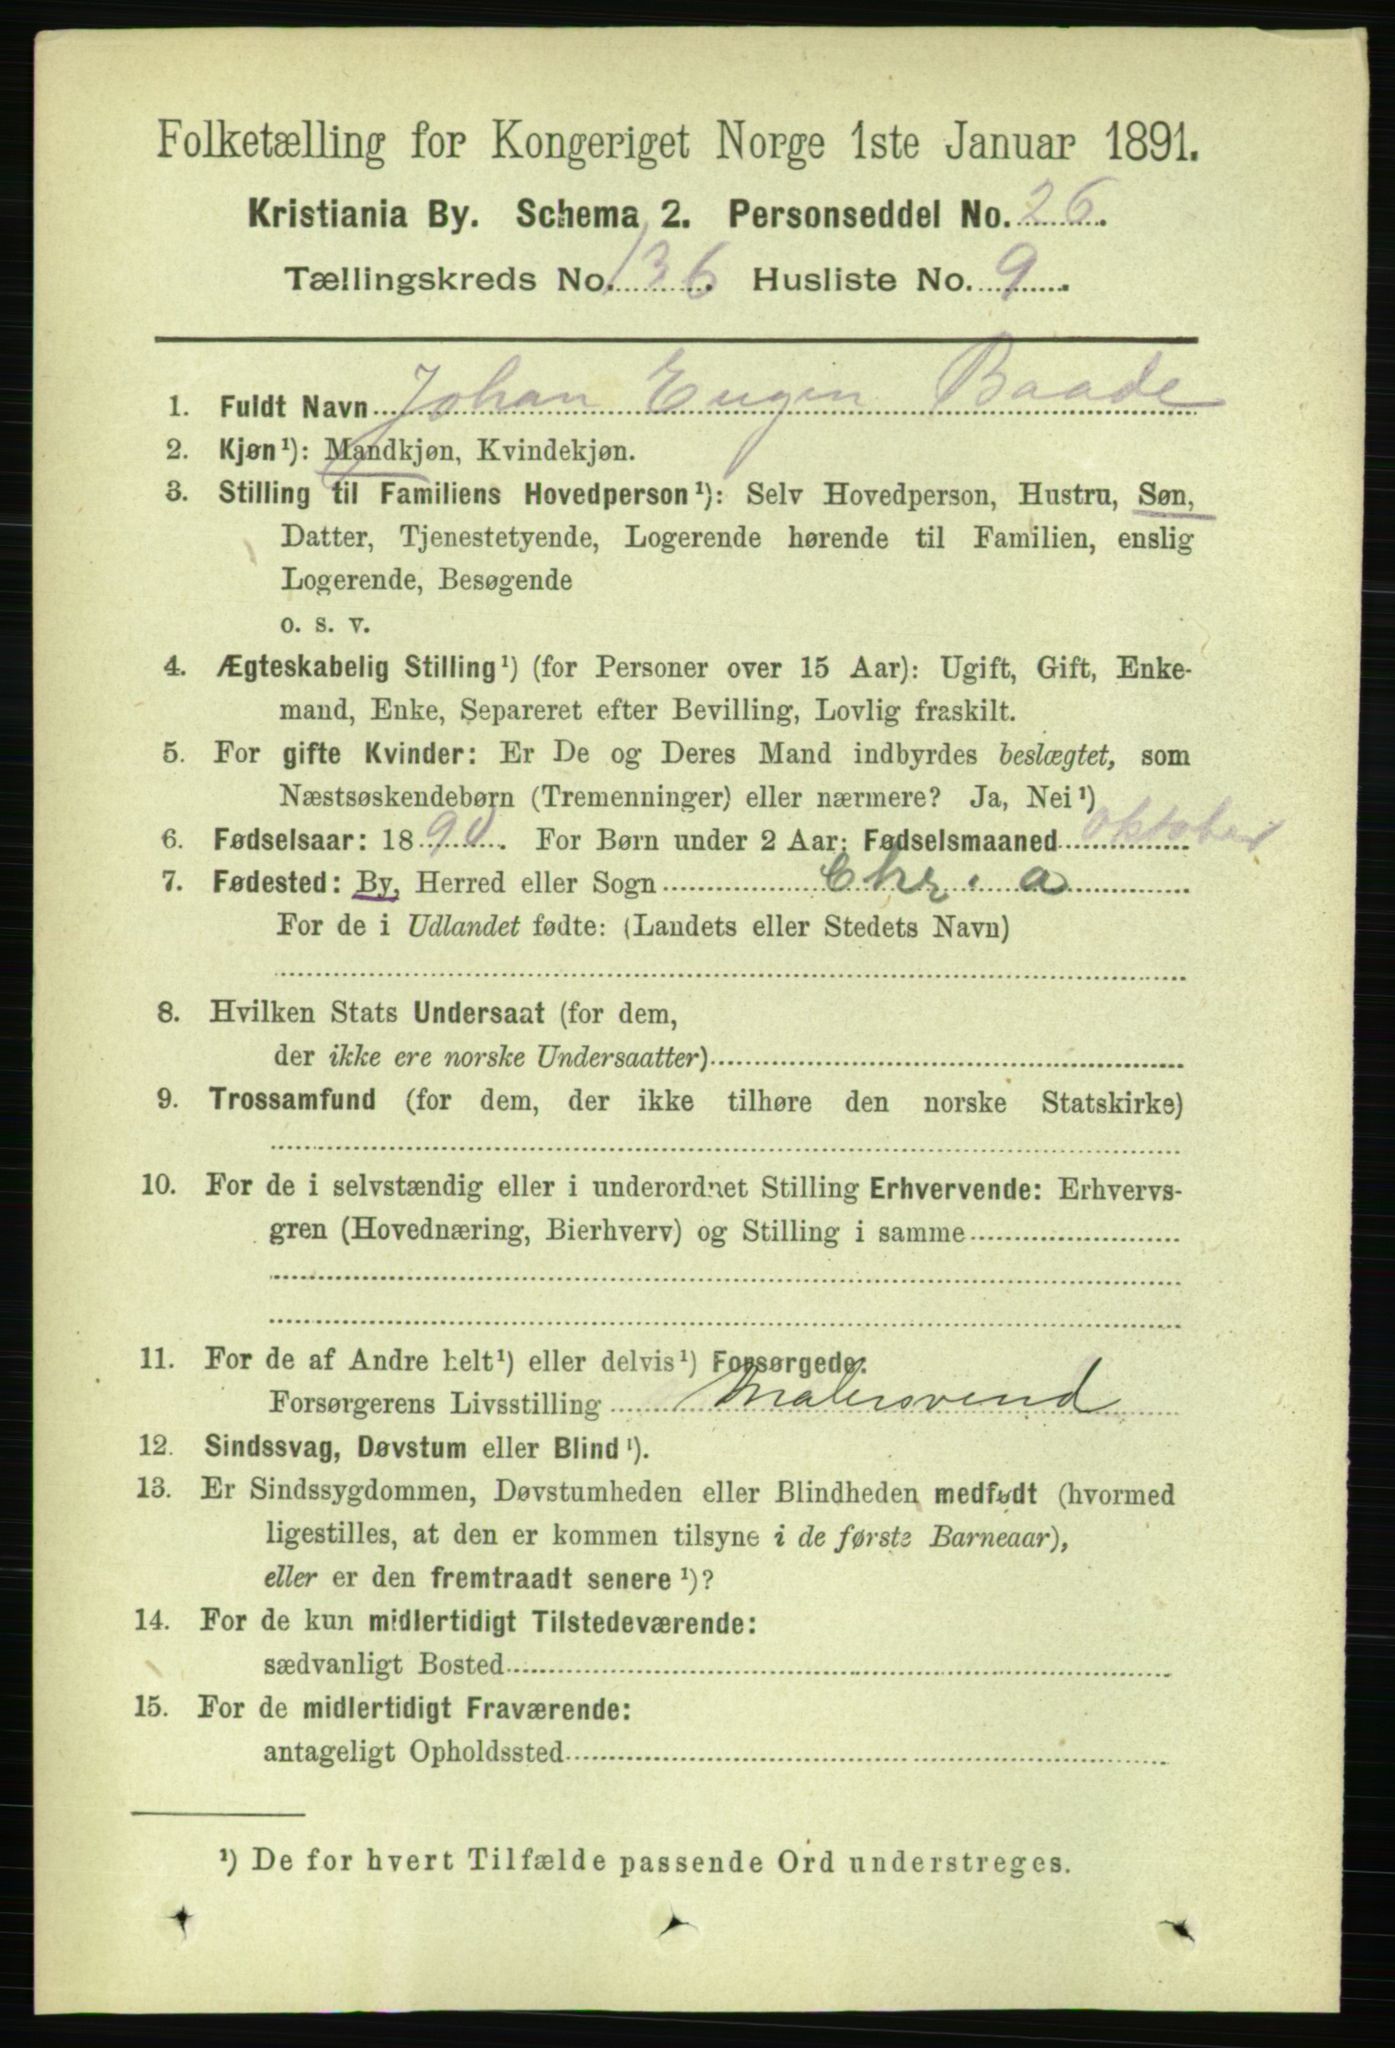 Folketælling for Kongeriget Norge 1ste Januar 1891.
Kristiania By. Schema 2. Personseddel No. 26.
Tællingskreds No. 136. Husliste No. 9.
1. Fuldt Navn Johan Eugen Baade
2. Kjøn¹): Mandkjøn, Kvindekjøn.
3. Stilling til Familiens Hovedperson¹): Selv Hovedperson, Hustru, Søn,
Datter, Tjenestetyende, Logerende hørende til Familien, enslig
Logerende, Besøgende
o. s. v.
4. Ægteskabelig Stilling¹) (for Personer over 15 Aar): Ugift, Gift, Enke-
mand, Enke, Separeret efter Bevilling, Lovlig fraskilt.
5. For gifte Kvinder: Er De og Deres Mand indbyrdes beslægtet, som
Næstsøskendebørn (Tremenninger) eller nærmere? Ja, Nei¹)
6. Fødselsaar: 1890. For Børn under 2 Aar: Fødselsmaaned oktober
7. Fødested: By, Herred eller Sogn Chr.a
For de i Udlandet fødte: (Landets eller Stedets Navn)
8. Hvilken Stats Undersaat (for dem,
der ikke ere norske Undersaatter)
9. Trossamfund (for dem, der ikke tilhøre den norske Statskirke)
10. For de i selvstændig eller i underordnet Stilling Erhvervende: Erhvervs-
gren (Hovednæring, Bierhverv) og Stilling i samme
11. For de af Andre helt¹) eller delvis¹) Forsørgede:
Forsørgerens Livsstilling Malersvend
12. Sindssvag, Døvstum eller Blind¹).
13. Er Sindssygdommen, Døvstumheden eller Blindheden medfødt (hvormed
ligestilles, at den er kommen tilsyne i de første Barneaar),
eller er den fremtraadt senere¹)?
14. For de kun midlertidigt Tilstedeværende:
sædvanligt Bosted
15. For de midlertidigt Fraværende:
antageligt Opholdssted
¹) De for hvert Tilfælde passende Ord understreges.